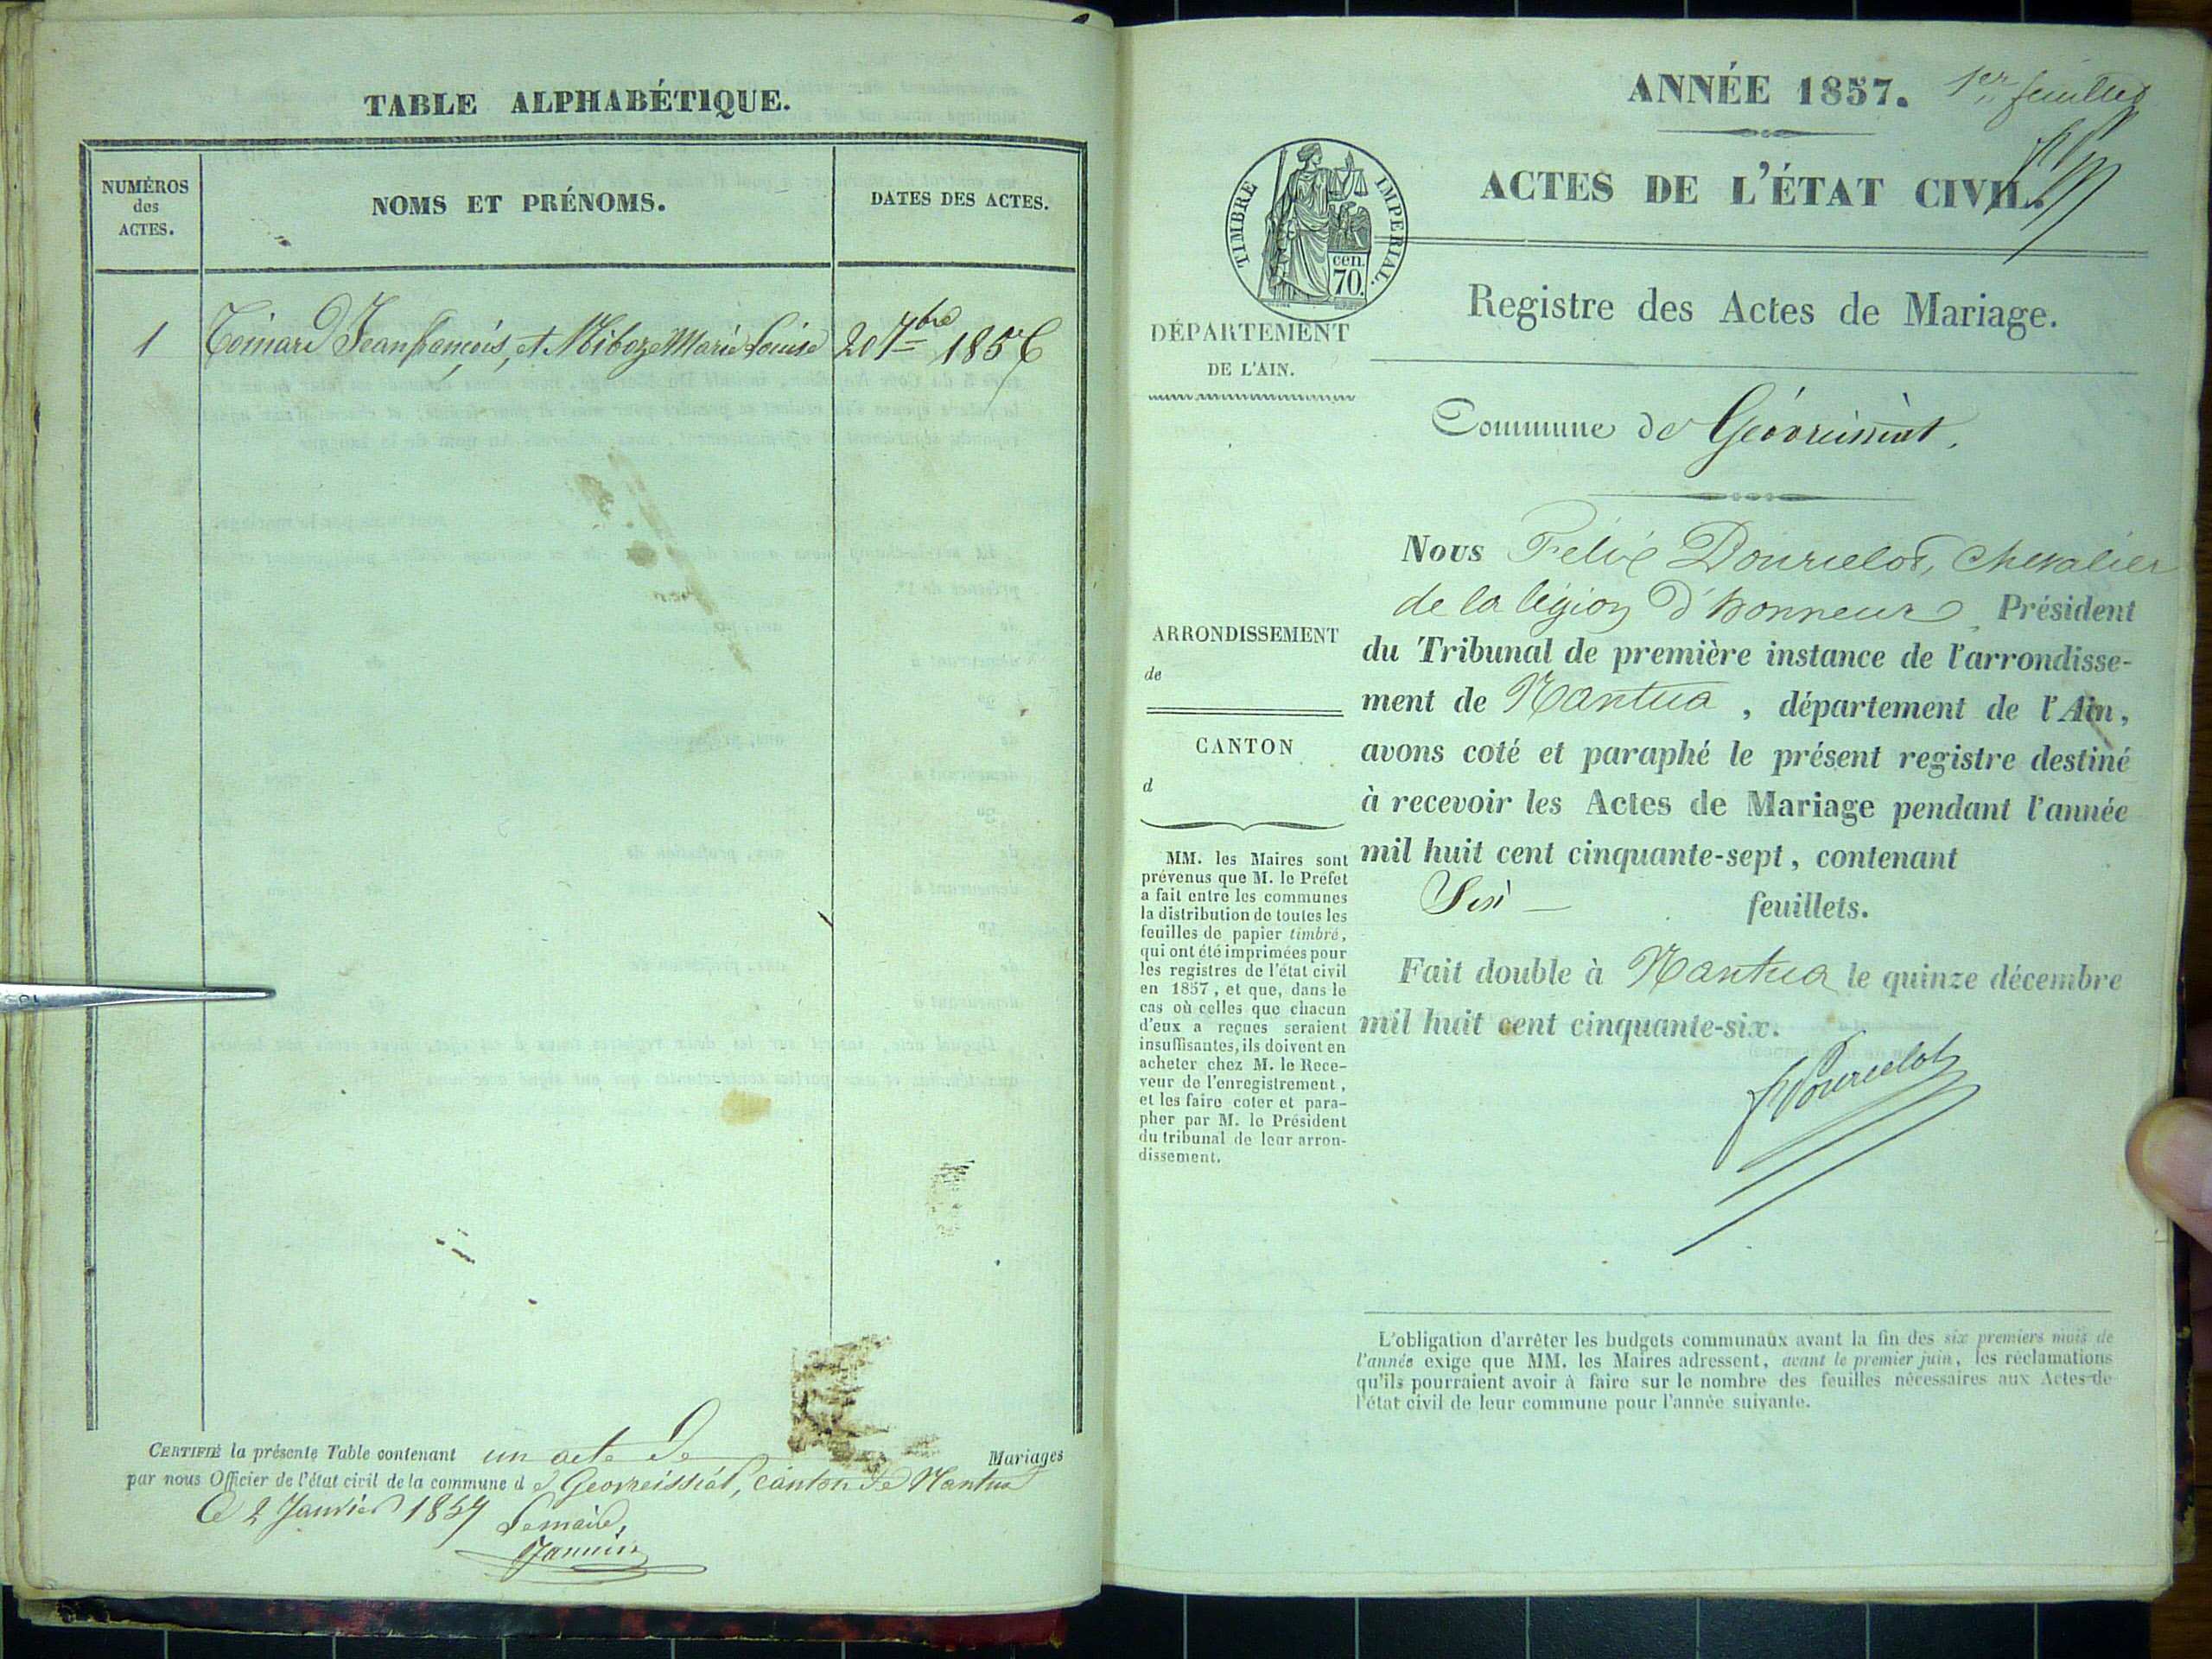 TABLE ALPHABÉTIQUE.
NUMÉROS
des
ACTES.
NOMS ET PRÉNOMS.
DATES DES ACTES.
1
Jean françois, et Marie Louise
20 7bre 1856
CERTIFIÉ la présente Table contenant un acte de Mariages
par nous Officier de l'état civil de la commune d e Geovreissiat, canton de Nantua
Ce 2 Janvier 1857 Le maire,
Jannin
ANNÉE 1857.
1er feuillet
ACTES DE L'ÉTAT CIVIL.
TIMBRE IMPÉRIAL.
cen.
70.
Registre des Actes de Mariage.
DÉPARTEMENT
DE L'AIN.
Commune de
Nous Félix Dourcelot, Chevalier
de la légion d'honneur, Président
du Tribunal de première instance de l'arrondisse-
ment de Nantua, département de l'Ain,
avons coté et paraphé le présent registre destiné
à recevoir les Actes de Mariage pendant l'année
mil huit cent cinquante-sept, contenant
Six — feuillets.
Fait double à Nantua le quinze décembre
mil huit cent cinquante-six.
ARRONDISSEMENT
de
CANTON
d
MM. les Maires sont
prévenus que M. le Préfet
a fait entre les communes
la distribution de toutes les
feuilles de papier timbré,
qui ont été imprimées pour
les registres de l'état civil
en 1857, et que, dans le
cas où celles que chacun
d'eux a reçues seraient
insuffisantes, ils doivent en
acheter chez M. le Rece-
veur de l'enregistrement,
et les faire coter et para-
pher par M. le Président
du tribunal de leur arron-
dissement.
L'obligation d'arrêter les budgets communaux avant la fin des six premiers mois de
l'année exige que MM. les Maires adressent, avant le premier juin, les réclamations
qu'ils pourraient avoir à faire sur le nombre des feuilles nécessaires aux Actes de
l'état civil de leur commune pour l'année suivante.